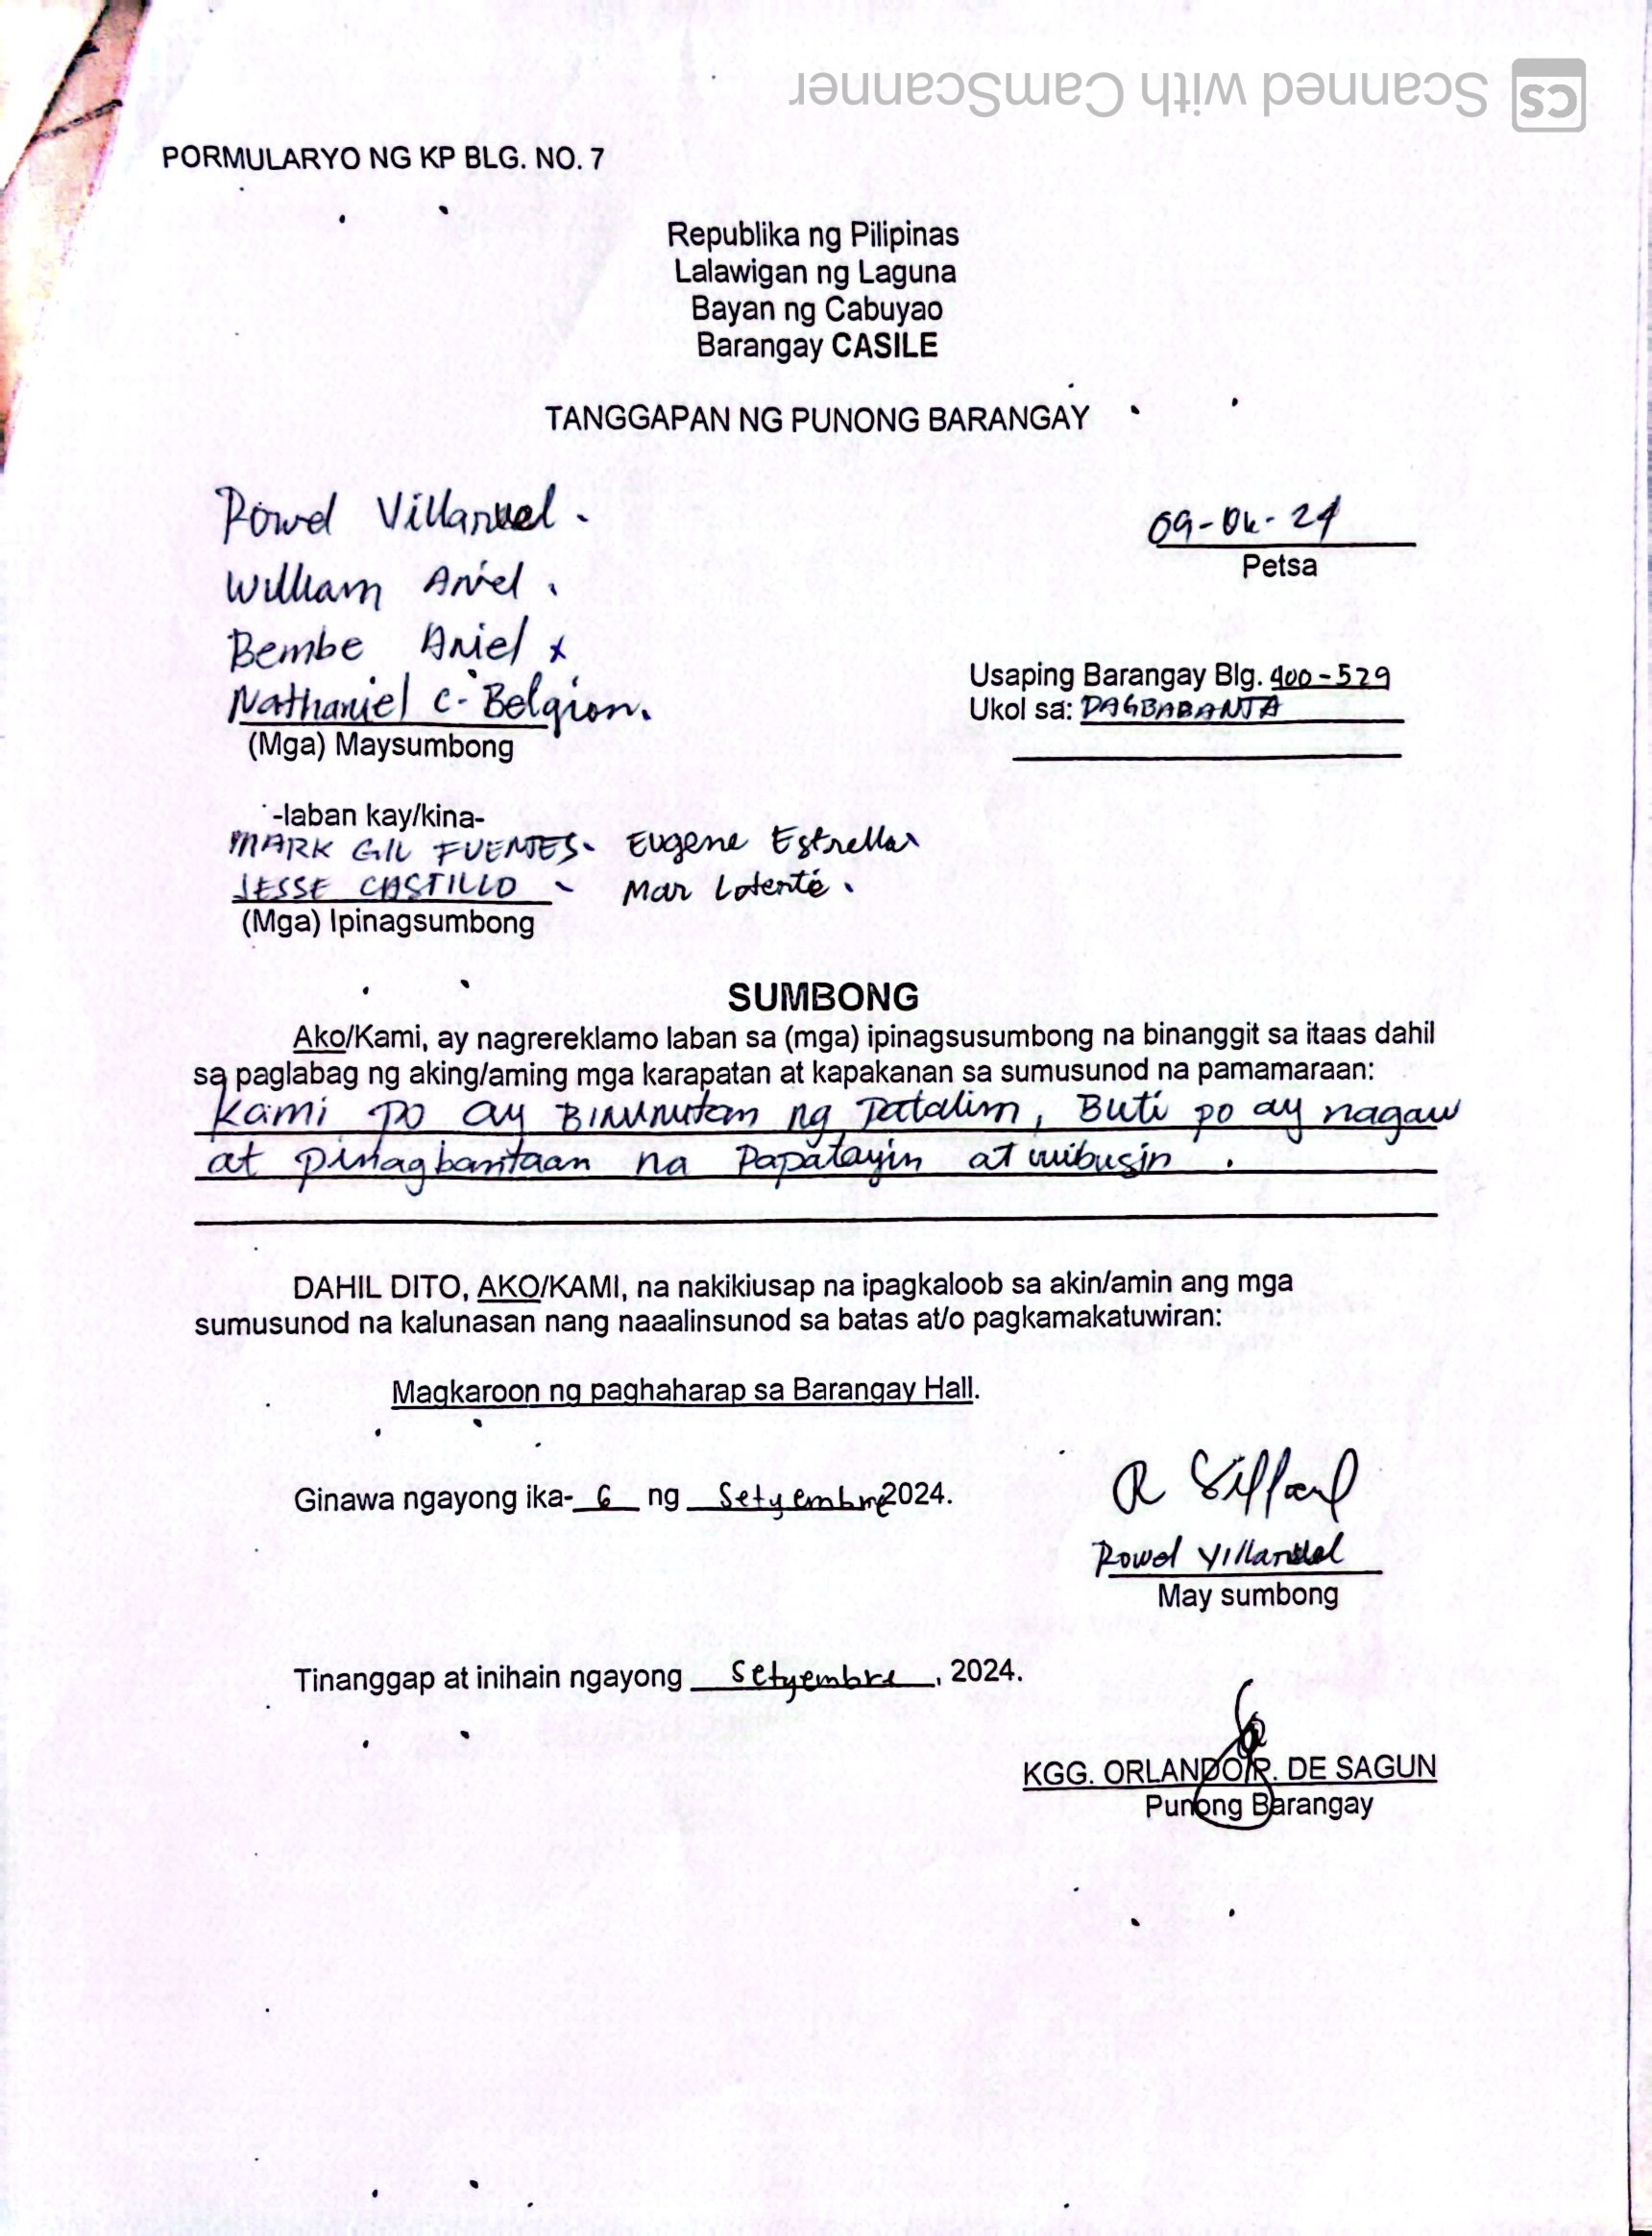 Scanned with CamScanner
CS
PORMULARYO NG KP BLG. NO. 7
Republika ng Pilipinas
Lalawigan ng Laguna
Bayan ng Cabuyao
Barangay CASILE
TANGGAPAN NG PUNONG BARANGAY
Rowel Villaruel.
William Ariel.
Bembe Ariel x
Nathaniel C. Belgion.
(Mga) Maysumbong
09-06-24
Petsa
Usaping Barangay Blg. 400-529
Ukol sa: PAGBABANTA
-laban kay/kina-
MARK GIL FUENTES- Eugene Estrellar
JESSE CASTILLO - Mar
(Mga) Ipinagsumbong
SUMBONG
Ako/Kami, ay nagrereklamo laban sa (mga) ipinagsusumbong na binanggit sa itaas dahil
sa paglabag ng aking/aming mga karapatan at kapakanan sa sumusunod na pamamaraan:
Kami po ay Binunutan ng Patalim, Buti po ay nagaw
at pinagbantaan na Papatayin at uubusin.
DAHIL DITO, AKO/KAMI, na nakikiusap na ipagkaloob sa akin/amin ang mga
sumusunod na kalunasan nang naaalinsunod sa batas at/o pagkamakatuwiran:
Magkaroon ng paghaharap sa Barangay Hall.
Ginawa ngayong ika- 6 ng Setyembre 2024.
Rowel Villaruel
May sumbong
Tinanggap at inihain ngayong Setyembre, 2024.
KGG. ORLANDO R. DE SAGUN
Punong Barangay